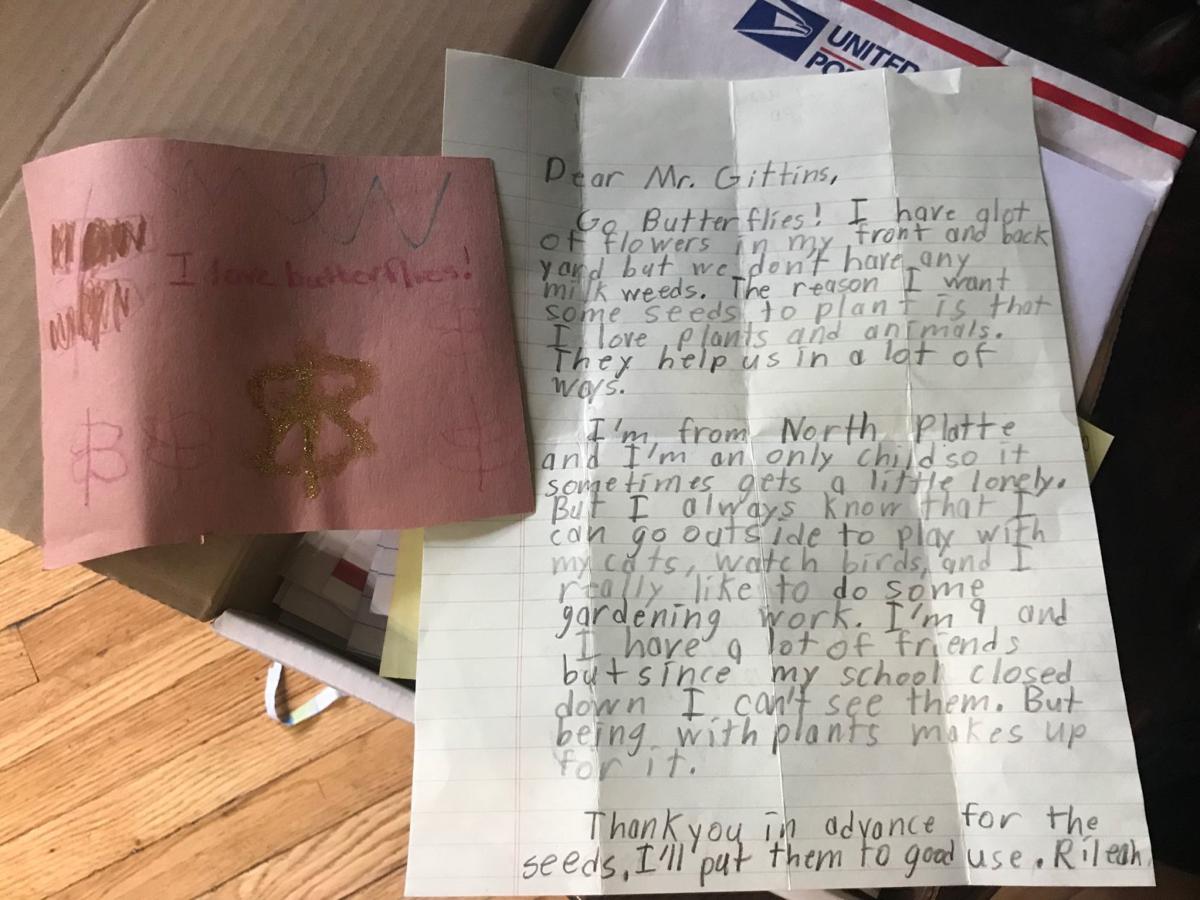 UNITED
Dear Mr. Gittins,
Go Butterflies! I have alot
of flowers in my front and back
yard but we don't have any
milk weeds. The reason I want
some seeds to plant is that
I love plants and animals.
They help us in a lot of
ways.
I'm from North Platte
and I'm an only child so it
sometimes gets a little lonely.
But I always know that I
can go outside to play with
my cats, watch birds, and I
really like to do some
gardening work. I'm 9 and
I have a lot of friends
but since my school closed
down I can't see them. But
being with plants makes up
for it.
Thank you in advance for the
seeds. I'll put them to good use. Rileah
I love butterflies!